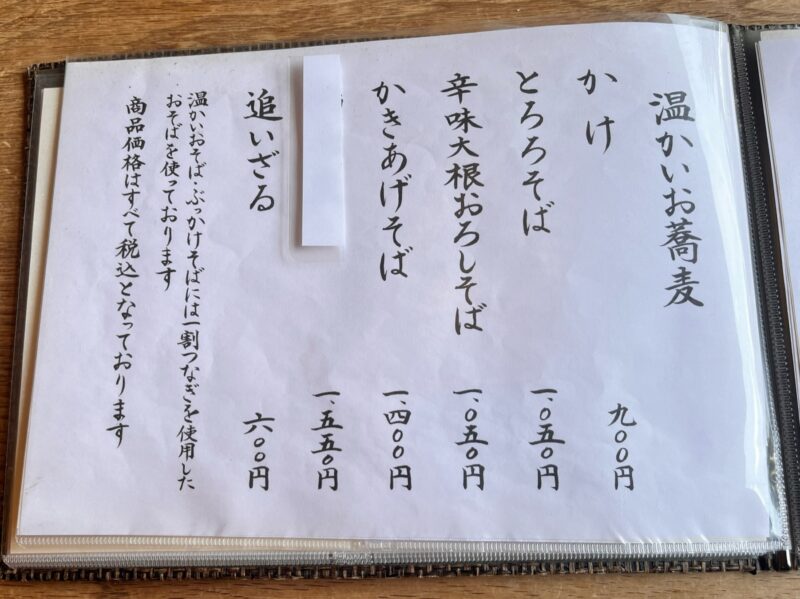 温かいお蕎麦
かけ 九〇〇円
とろろそば 一、〇五〇円
辛味大根おろしそば 一、〇五〇円
かきあげそば 一、四〇〇円
一、五五〇円
追いざる 六〇〇円
温かいおそば・ぶっかけそばには一割つなぎを使用した
おそばを使っております
商品価格はすべて税込となっております